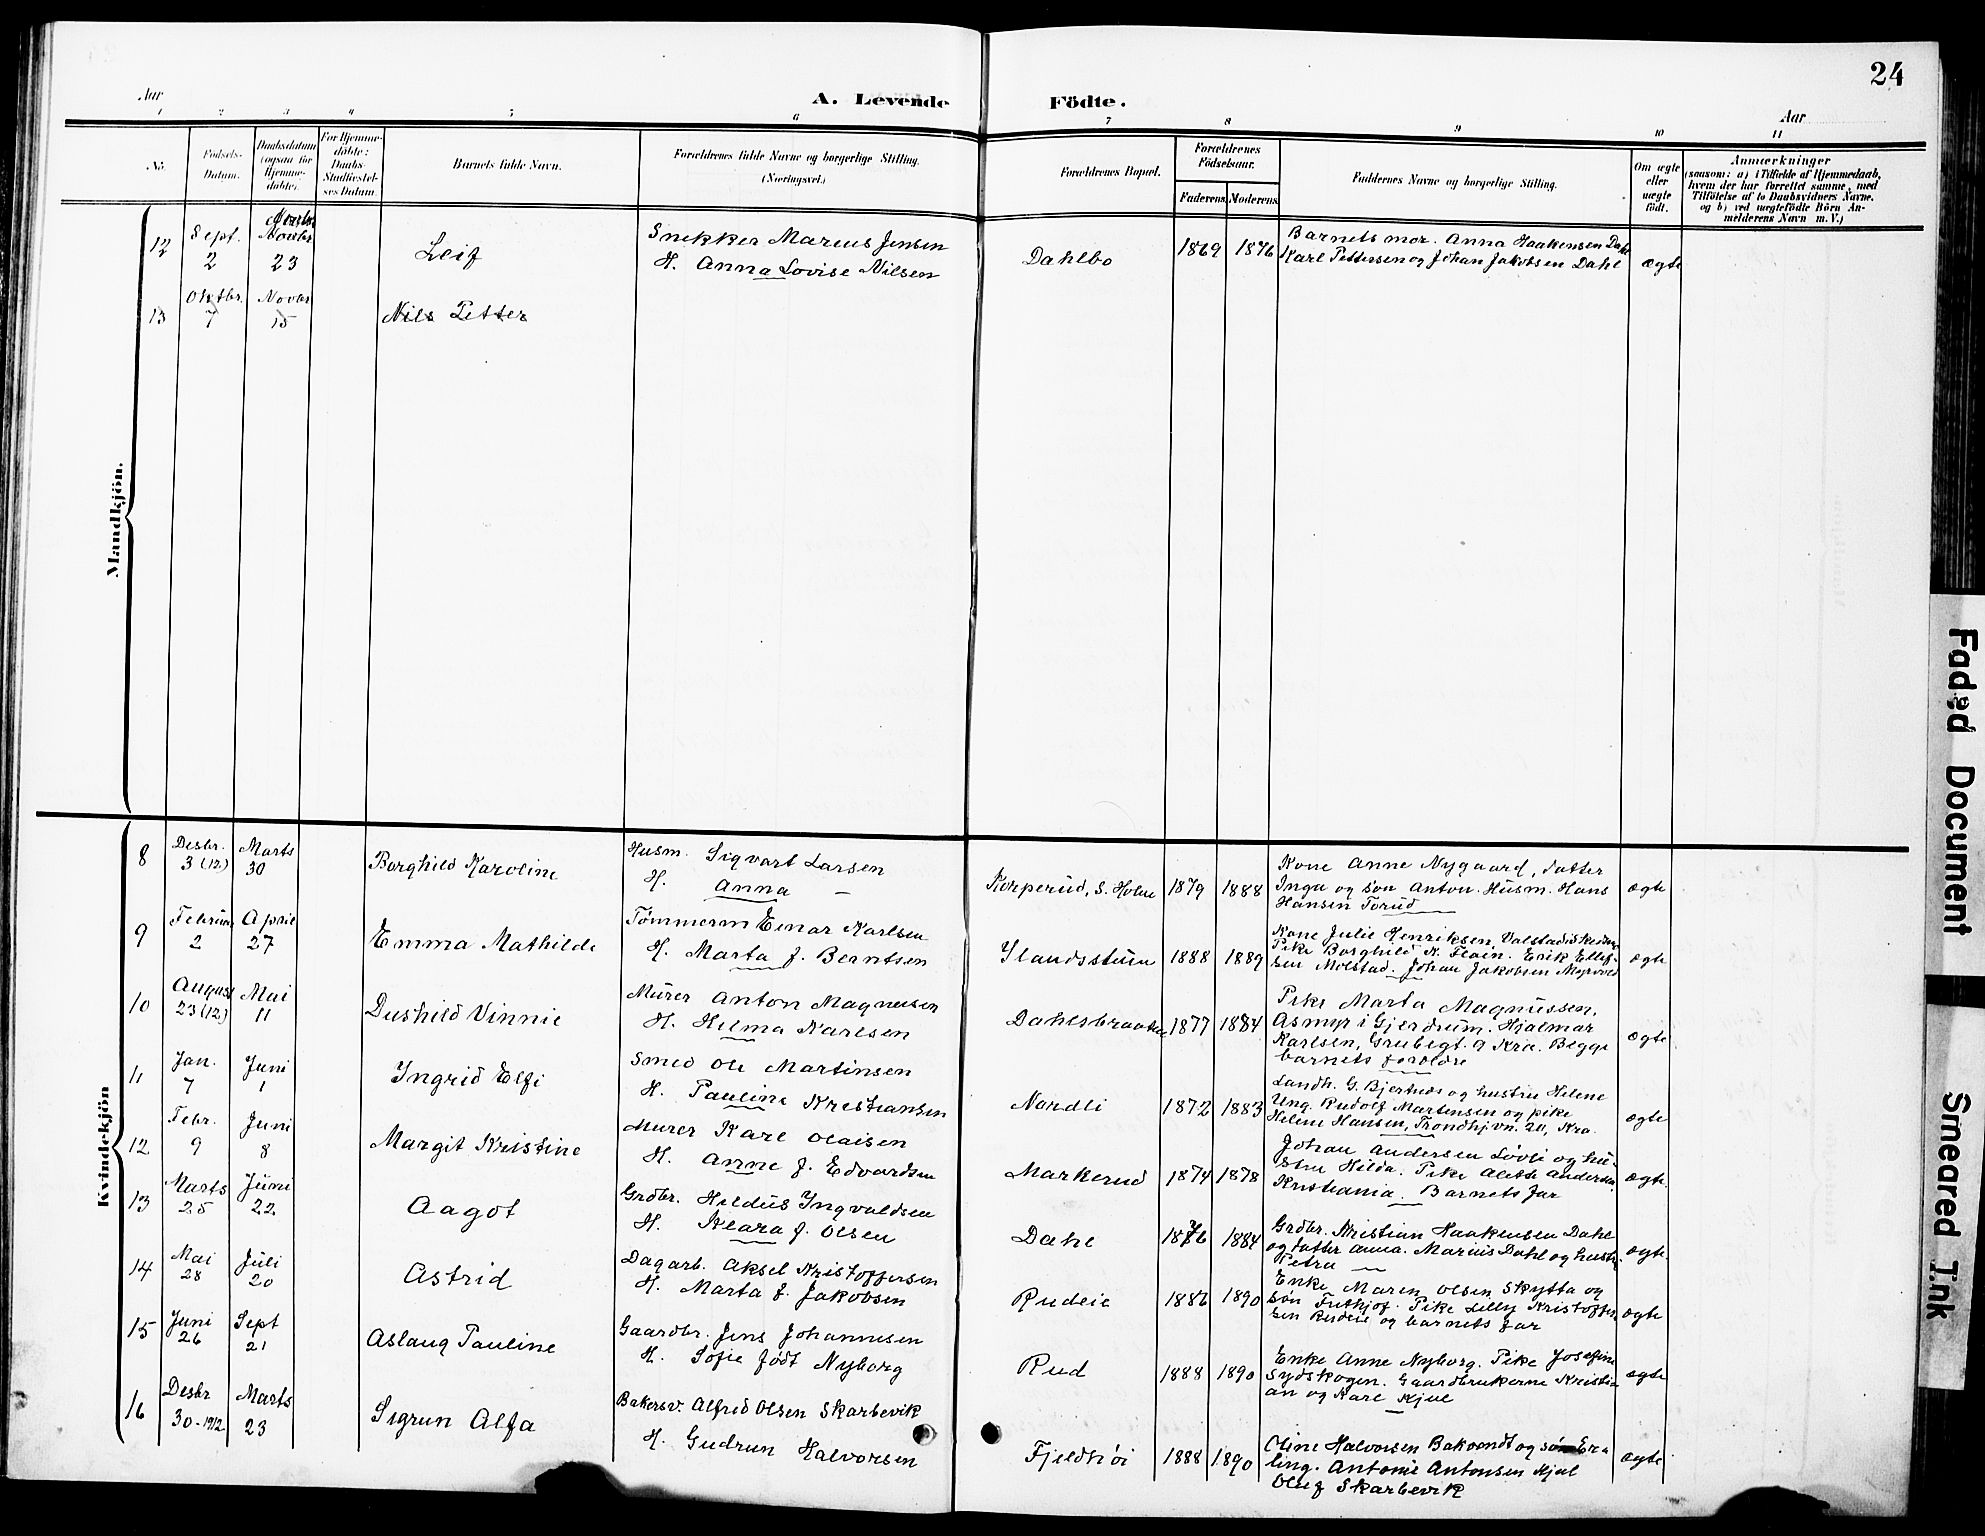 24
Aar
A. Levende Födte.
Aar
1 2 3 4 5 6 7 8 9 10 11
No.
Födsels-Datum.
Daabsdatum (ogsaa for Hjemme-döbte).
For Hjemme-döbte: Daabs-Stadfæstel-ses Datum.
Barnets fulde Navn.
Forældrenes fulde Navne og borgerlige Stilling. (Næringsvei.)
Forældrenes Bopæl.
Forældrenes Födselsaar.
Faderens Moderens
Faddernes Navne og borgerlige Stilling.
Om ægte eller uægte födt.
Anmærkninger
(saasom: a) i Tilfælde af Hjemmedaab, hvem der har forrettet samme, med Tilföielse af to Daabsvidners Navne. og b) ved uægtefödte Börn An-melderens Navn m. V.)
Mandkjön.
12 Sept. 2 Novbr 23 Leif
Snekker Marius Jensen
H. Anna Lovise Nilsen
Dahlbo 1869 1876
Barnets mor. Anna Haakensen Dahl
Karl Pettersen og Johan Jakobsen Dahl
ægte
13 Oktbr. 7 Novbr 15 Nils Petter
Kvindekjön
8 Desbr. 3 (12) Marts 30 Borghild Karoline
Husm. Sigvart Larsen
H. Anna –
Korperud, S. Holm 1879 1888
Kone Anne Nygaard, datter
Inga og søn Anton. Husm. Hans
Hansen Torud
ægte
9 Februar 2 April 27 Emma Mathilde
Tømmerm Einar Karlsen
H. Marta f. Berntsen
Ilandsstuen 1888 1889
Kone Julie Henriksen,
Pike Borghild K. Floen. Erik Ellef-
sen Molstad. Johan Jakobsen
ægte
10 August 23 (12) Mai 11 Dushild Vinnie
Murer Anton Magnussen
H. Hilma Karlsen
Dahlsbraaten 1877 1884
Pike Marta Magnussen,
Asmyr i Gjerdrum. Hjalmar
Karlsen, Grubegt. 9 Kra. Begge
barnets foreldre
ægte
11 Jan. 7 Juni 1 Ingrid Elfi
Smed Ole Martinsen
H. Pauline Kristiansen
Nordli 1872 1883
Landh. G. Bjertnæs og hustru Helene
Ung. Rudolf Martinsen og pike
Helene Hansen, Trondhj.vn. 20, Kra.
ægte
12 Febr. 9 Juni 8 Margit Kristine
Murer Karl Olaisen
H. Anne f. Edvardsen
Markerud 1874 1878
Johan Andersen Løvli og hu-
stru Hilda. Pike Aleth Andersen
Kristiania. Barnets far
ægte.
13 Marts 25 Juni 22 Aagot
Grdbr. Heldus Ingvaldsen
H. Klara f. Olsen
Dahl 1876 1884
Grdbr. Kristian Haakensen Dahl
og datter Anna. Marius Dahl og hustr.
Petra
ægte.
14 Mai 28 Juli 20 Astrid
Dagarb. Aksel Kristoffersen
H. Marta f. Jakobsen
Rudeie 1886 1890
Enke Maren Olsen Skytta og
søn Frithjof. Pike Lilly Kristoffer
sen Rudeie og barnets far
ægte
15 Juni 26 Sept 21 Aslaug Pauline
Gaardbr. Jens Johannesen
H. Sofie født Nyborg
Rud 1888 1890
Enke Anne Nyborg. Pike Josefine
Sydskogen. Gaardbrukerne Kristi-
an og Karl Kjul
ægte
16 Desbr 30-1912 Marts 23 Sigrun Alfa
Bakersv. Alfred Olsen Skarbevik
H. Gudrun Halvorsen
Fjeldhøi 1888 1890
Oline Halvorsen Bakvandt og søn Er-
ling. Antonie Antonsen Kjul
Oluf Skarbevik
ægte
Faded Document
Smeared Ink